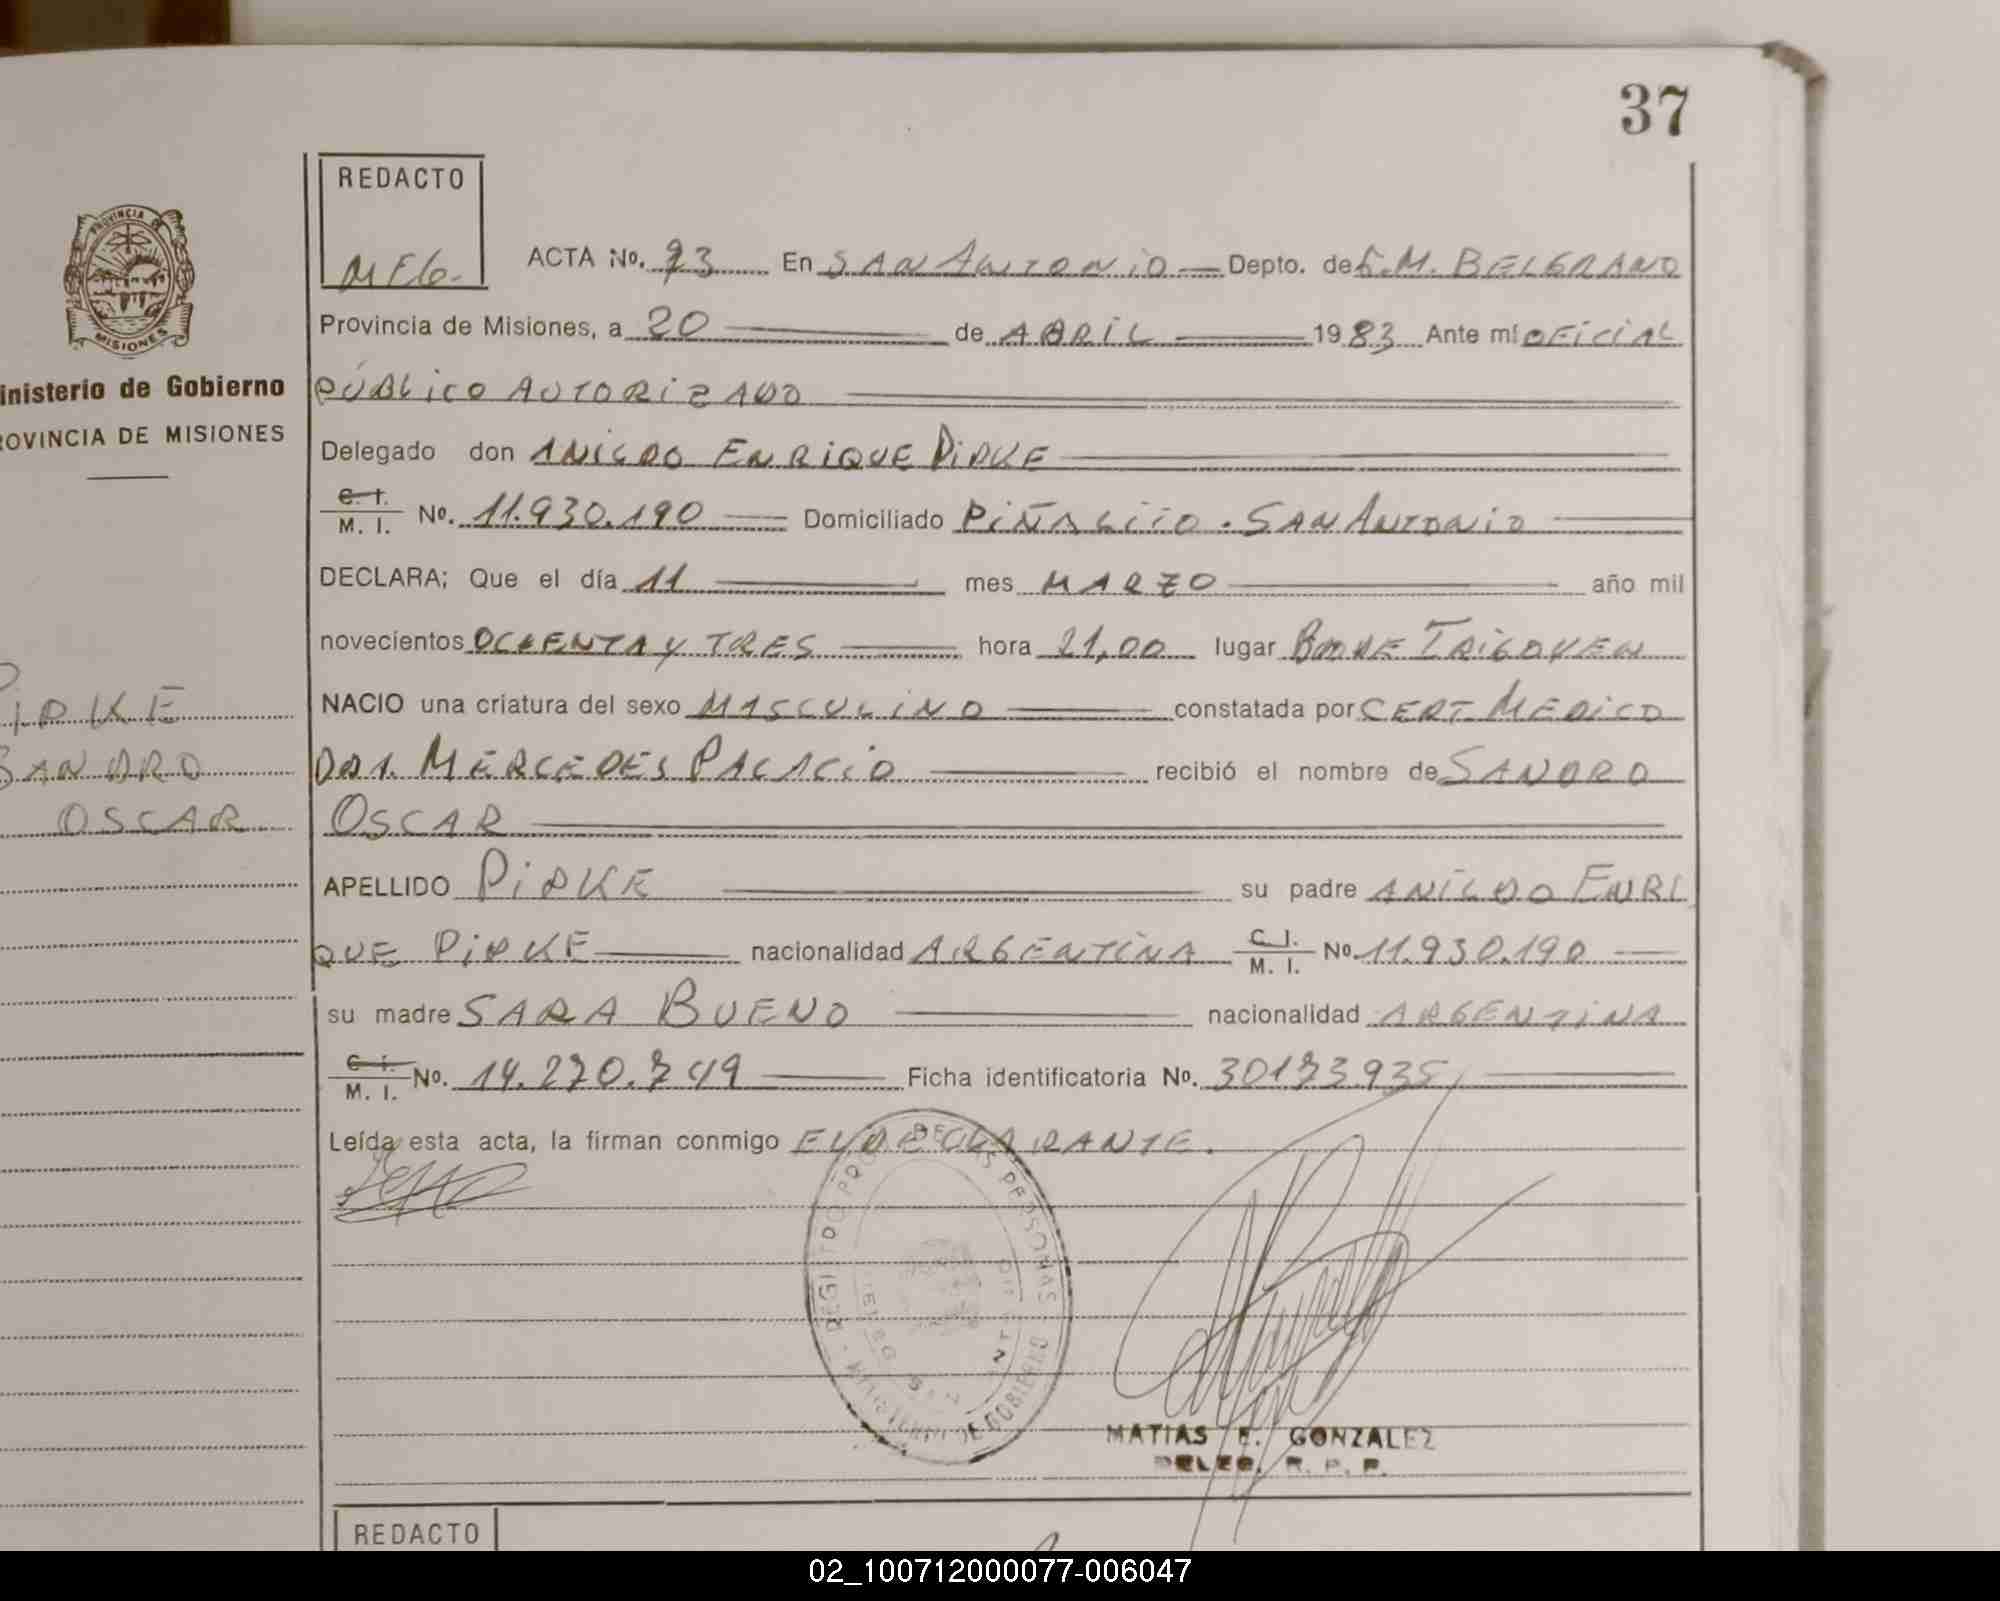 37
REDACTO
MEG.
PROVINCIA DE
MISIONES
ACTA No. 73 En SAN ANTONIO Depto. de G.M. BELGRANO
Provincia de Misiones, a 20 de ABRIL 1983 Ante mi OFICIAL
PÚBLICO AUTORIZADO
inisterio de Gobierno
ROVINCIA DE MISIONES
Delegado don ANILDO ENRIQUE PIPKE
C. I.
M. I. No. 11.930.190 Domiciliado PIÑALITO . SAN ANTONIO
DECLARA; Que el día 11 mes MARZO año mil
novecientos OCHENTA Y TRES hora 21,00 lugar BDO DE IRIGOYEN
NACIO una criatura del sexo MASCULINO constatada por CERT. MEDICO
DRA. MERCEDES PALACIO recibió el nombre de SANDRO
OSCAR
PIPKE
SANDRO
OSCAR
APELLIDO PIPKE su padre ANILDO ENRI
QUE PIPKE nacionalidad ARGENTINA C. I.
M. I. No. 11.930.190
su madre SARA BUENO nacionalidad ARGENTINA
C. I.
M. I. No. 14.270.749 Ficha identificatoria No. 30173.935
Leída esta acta, la firman conmigo EL DECLARANTE.
REGISTRO PROV. DE LAS PERSONAS
MINISTERIO DE GOBIERNO
MATIAS E. GONZALEZ
DELEG. R. P. P.
REDACTO
02_100712000077-006047